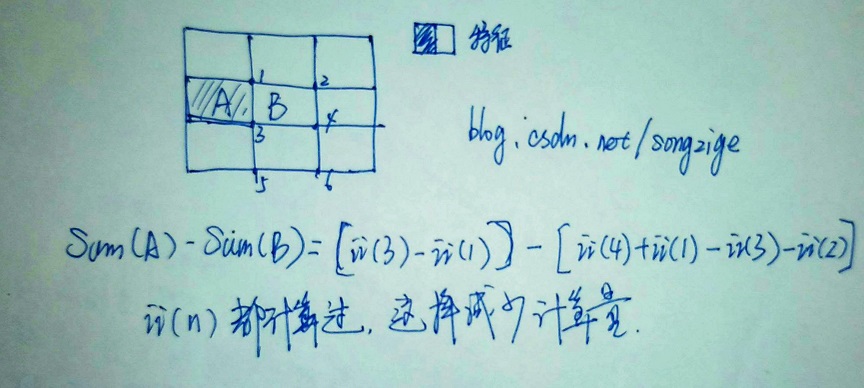 特征
1 2
A B
3 4
5 6
blog.csdn.net/songzige
Sum(A)-Sum(B)=[ii(3)-ii(1)]-[ii(4)+ii(1)-ii(3)-ii(2)]
ii(n)都计算过,这样减少计算量.